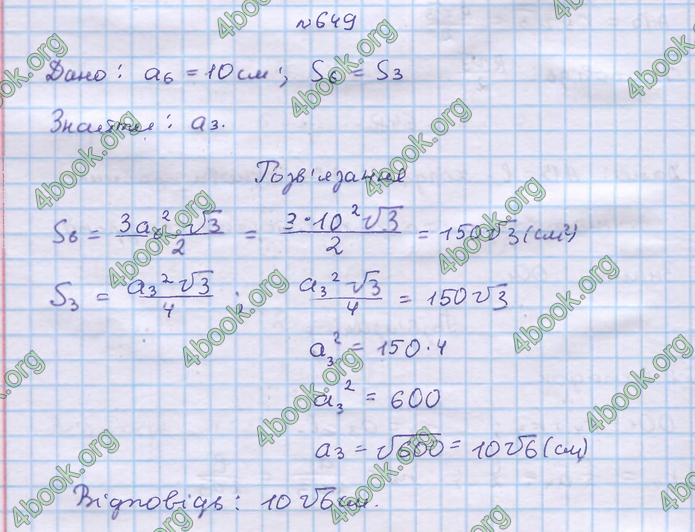 №649
Дано: a₆ = 10 см; S₆ = S₃
Знайти: a₃.
Розв'язання
S₆ = 3a₆²√3/2 = 3·10²√3/2 = 150√3 (см²)
S₃ = a₃²√3/4; a₃²√3/4 = 150√3
a₃² = 150·4
a₃² = 600
a₃ = √600 = 10√6 (см)
Відповідь: 10√6 см.
4book.org